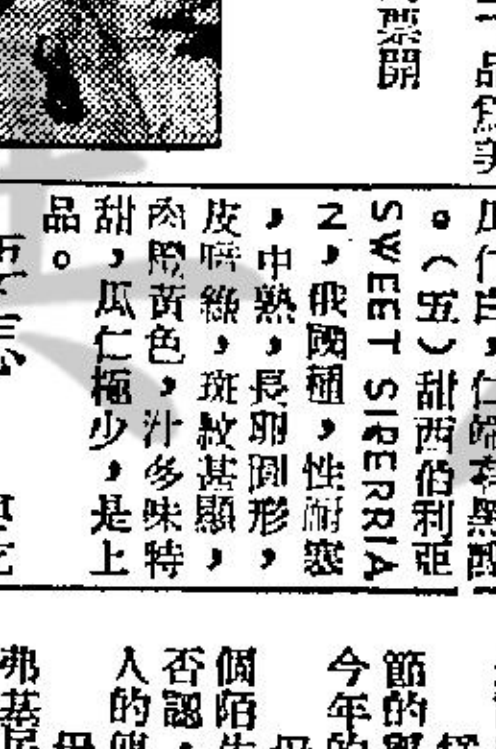 票開
品為美
瓜仁白，仁端有黑
。（五）甜西伯利亞
SWEET SIRERRIA
N，俄國種，性耐寒
，中熟，長卵圓形，
皮暗綠，斑紋甚顯，
肉橙黃色，汁多味特
甜，瓜仁極少，是上
品。
節的
今年的
個陌生
否認，
人的
弗基